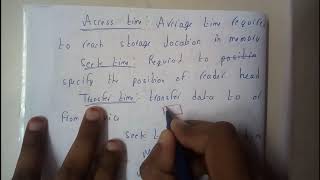 Across time: Average time require
to reach storage location in memory
Seek time: Required to
specify the position of reader head
Transfer time: transfer data to or
from
seek t